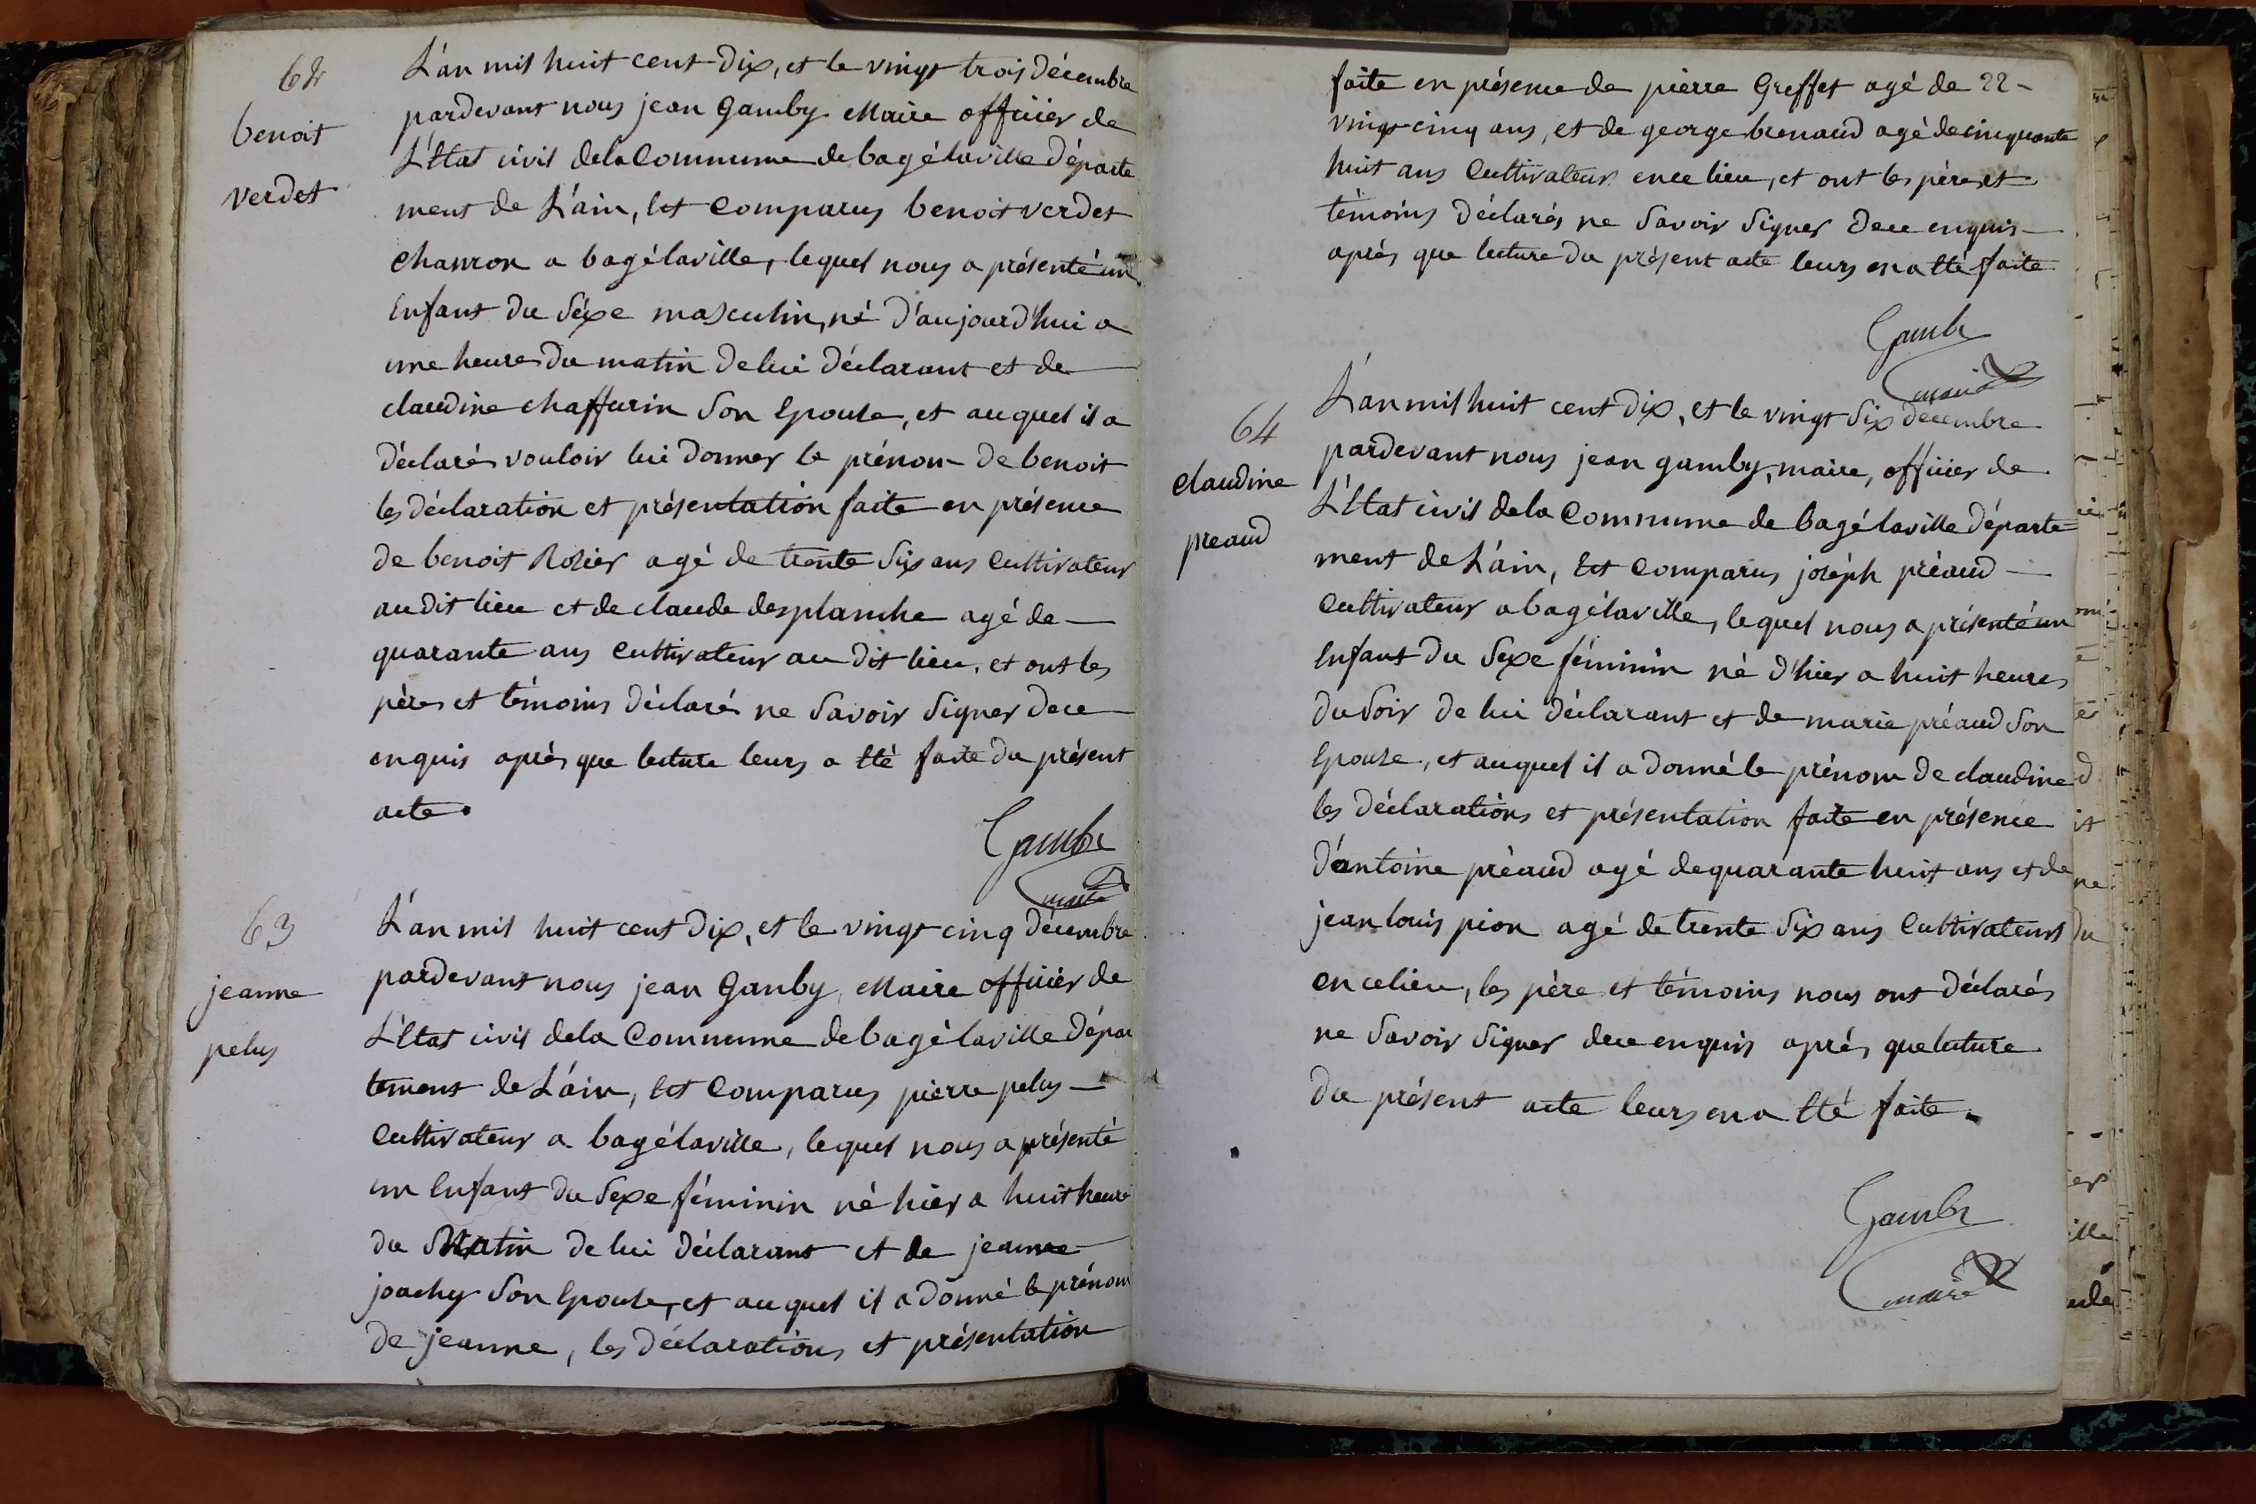 62
benoit
verdet
L'an mil huit cent dix, et le vingt trois décembre
pardevant nous jean Gamby Maire officier de
L'Etat civil dela Commune de bagélaville Départe
ment de L'ain, Est Comparus benoit verdet
chanron a bagélaville, lequel nous a présenté un
Enfant du Séxe masculin, né d'aujourd'hui a
une heure du matin de lui déclarant et de
claudine chaffurin Son Epouse, et auquel il a
déclarés vouloir lui donner le prénom de benoit
les déclaration et présentation faite en présence
de benoit Rozier agé de trente Six ans Cultivateur
au dit lieu et de claude desplanche agé de
quarante ans Cultivateur au dit lieu, et ont les
pères et témoins déclarés ne Savoir Signer dece
enquis après que lecture leurs a Eté faite du présent
acte.
Gambi
maire
63
jeanne
pelus
L'an mil huit cent dix, et le vingt cinq décembre
pardevant nous jean Gamby, Maire officier de
L'Etat civil dela Commune de bagélaville Dépar
tement de L'ain, Est Comparus pierre pelus
Cultivateur a bagélaville, lequel nous a présenté
un Enfant du Sexe féminin né hier a huit heure
du Matin de lui déclarant et de jeanne
joachy Son Epouse, et auquel il a donné le prénom
de jeanne, les déclarations et présentation
faite en présence de pierre Greffet agé de 22 -
vingt cinq ans, et de george brenaud agé de cinquante
huit ans Cultivateur ence lieu, et ont les pères et
témoins déclarés ne Savoir Signer dece enquis
après que lecture du présent acte leurs en a Eté faite
Gambi
maire
64
claudine
preaud
L'an mil huit cent dix, et le vingt Six décembre
pardevant nous jean gamby, maire, officier de
L'Etat civil dela Commune de bagélaville Départe=
ment de L'ain, Est Comparus joséph préaud
Cultivateur a bagélaville, lequel nous a présenté un
Enfant du Sexe féminin né d'hier a huit heures
du Soir de lui déclarant et de marie préaud Son
Epouse, et auquel il a donné le prénom de claudine
les déclarations et présentation faite en présence
d'antoine préaud agé dequarante huit ans et de
jean louis pion agé de trente Six ans Cultivateurs
en celieu, les père et témoins nous ont déclarés
ne Savoir Signer dece enquis après que lecture
du présent acte leurs en a Eté faite.
Gambi
maire